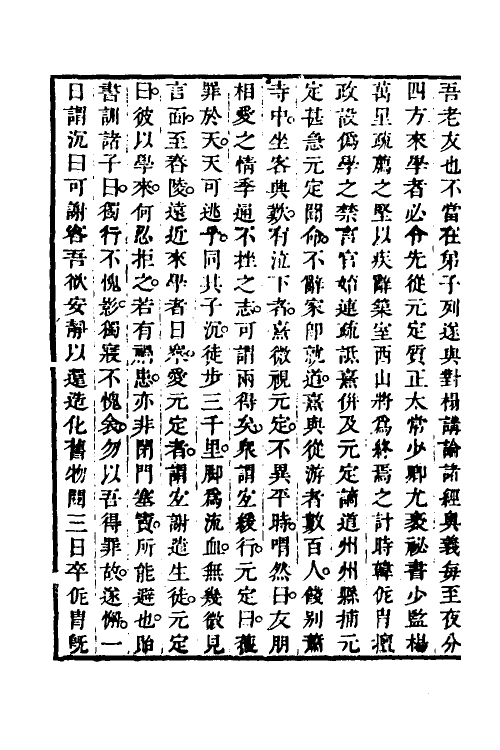 吾老友也不當在弟子列遂與對榻講論諸經奧義每至夜分
四方來學者必令先從元定質正太常少卿尤袤祕書少監楊
萬里疏薦之堅以疾辭築室西山將為終焉之計時韓侂胄擅
政設偽學之禁言官始連疏詆熹併及元定謫道州州縣捕元
定甚急元定聞命。不辭家即就道。熹與從游者數百人。餞別蕭
寺中。坐客興歎。有泣下者。熹微視元定。不異平時。喟然曰。友朋
相愛之情季通不挫之志。可謂兩得矣。衆謂宜緩行。元定曰。獲
罪於天。天可逃乎。同其子沉。徒步三千里。脚為流血。無幾微見
言面。至舂陵。遠近來學者日衆。愛元定者。謂宜謝遣生徒。元定
曰。彼以學來。何忍拒之。若有禍患。亦非閉門塞竇。所能避也。貽
書訓諸子曰。獨行不愧影。獨寢不愧衾。勿以吾得罪故。遂懈。一
日謂沉曰可謝客吾欲安靜以還造化舊物閱三日卒侂胄既